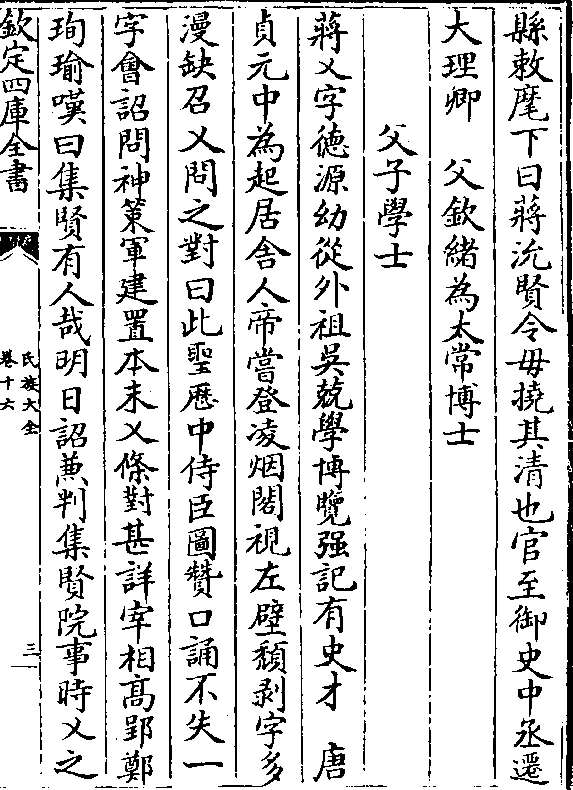 縣敕麾下曰蔣沇賢令毋撓其清也官至御史中丞遷
大理卿　父欽緒為太常博士
父子學士
蔣乂字德源幼從外祖吳兢學博覽强記有史才　唐
貞元中為起居舍人帝嘗登凌烟閣視左壁頹剥字多
漫缺召乂問之對曰此聖歷中侍臣圖贊口誦不失一
字會詔問神策軍建置本末乂條對甚詳宰相髙郢鄭
珣瑜嘆曰集賢有人哉明日詔兼判集賢院事時乂之
欽定四庫全書
氏族大全
卷十六
三